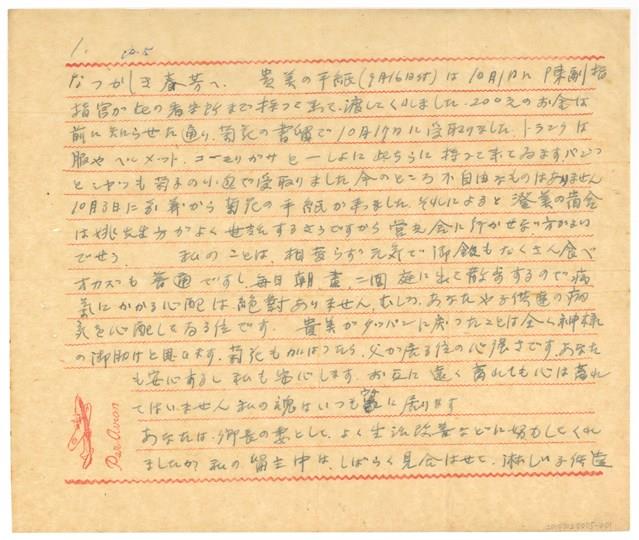 1.
なつかしき春芳へ. 貴美の手紙(9月16日付)は10月1日に 陳副指
指官が此の看守所まで持つて来て、渡してくれました. 200元のお金は
前に知らせた通り, 菊花の書留で10月17日に受取りました. トランクは
服やヘルメット. コーモリがサと一しよに此ちらに持つて来てゐます. パンツ
とシャツも菊子の小包で受取りました 今のところ不自由なものはありません
10月3日に から菊花の手紙が来ました. それによると澄美の宿舎
は姚先生方がよく世話するさうですから 会に行かせない方がよい
でせう. 私のことは、相変らず元気で御飯もたくさん食べ
オカズも普通ですし、毎日朝晝二回庭に出て散歩するので病
気にかかる心配は絶對ありません. むしろ、あなたや子供達の病
気を心配してゐる位です. 貴美がタッパンに戻つたことは全く神様
の御助けと思ひます. 菊花もかはつたら、父が居る位の心强さです. あなた
も安心するし私も安心します. お互に遠く離れても心は離れ
てはいません 私の魂はいつも家に居ります
あなたは、鄉長の妻として、よく生活改善などに努力してくれ
ましたが 私の留守中は、しばらく見合はせて、淋しい子供達
Par Avion